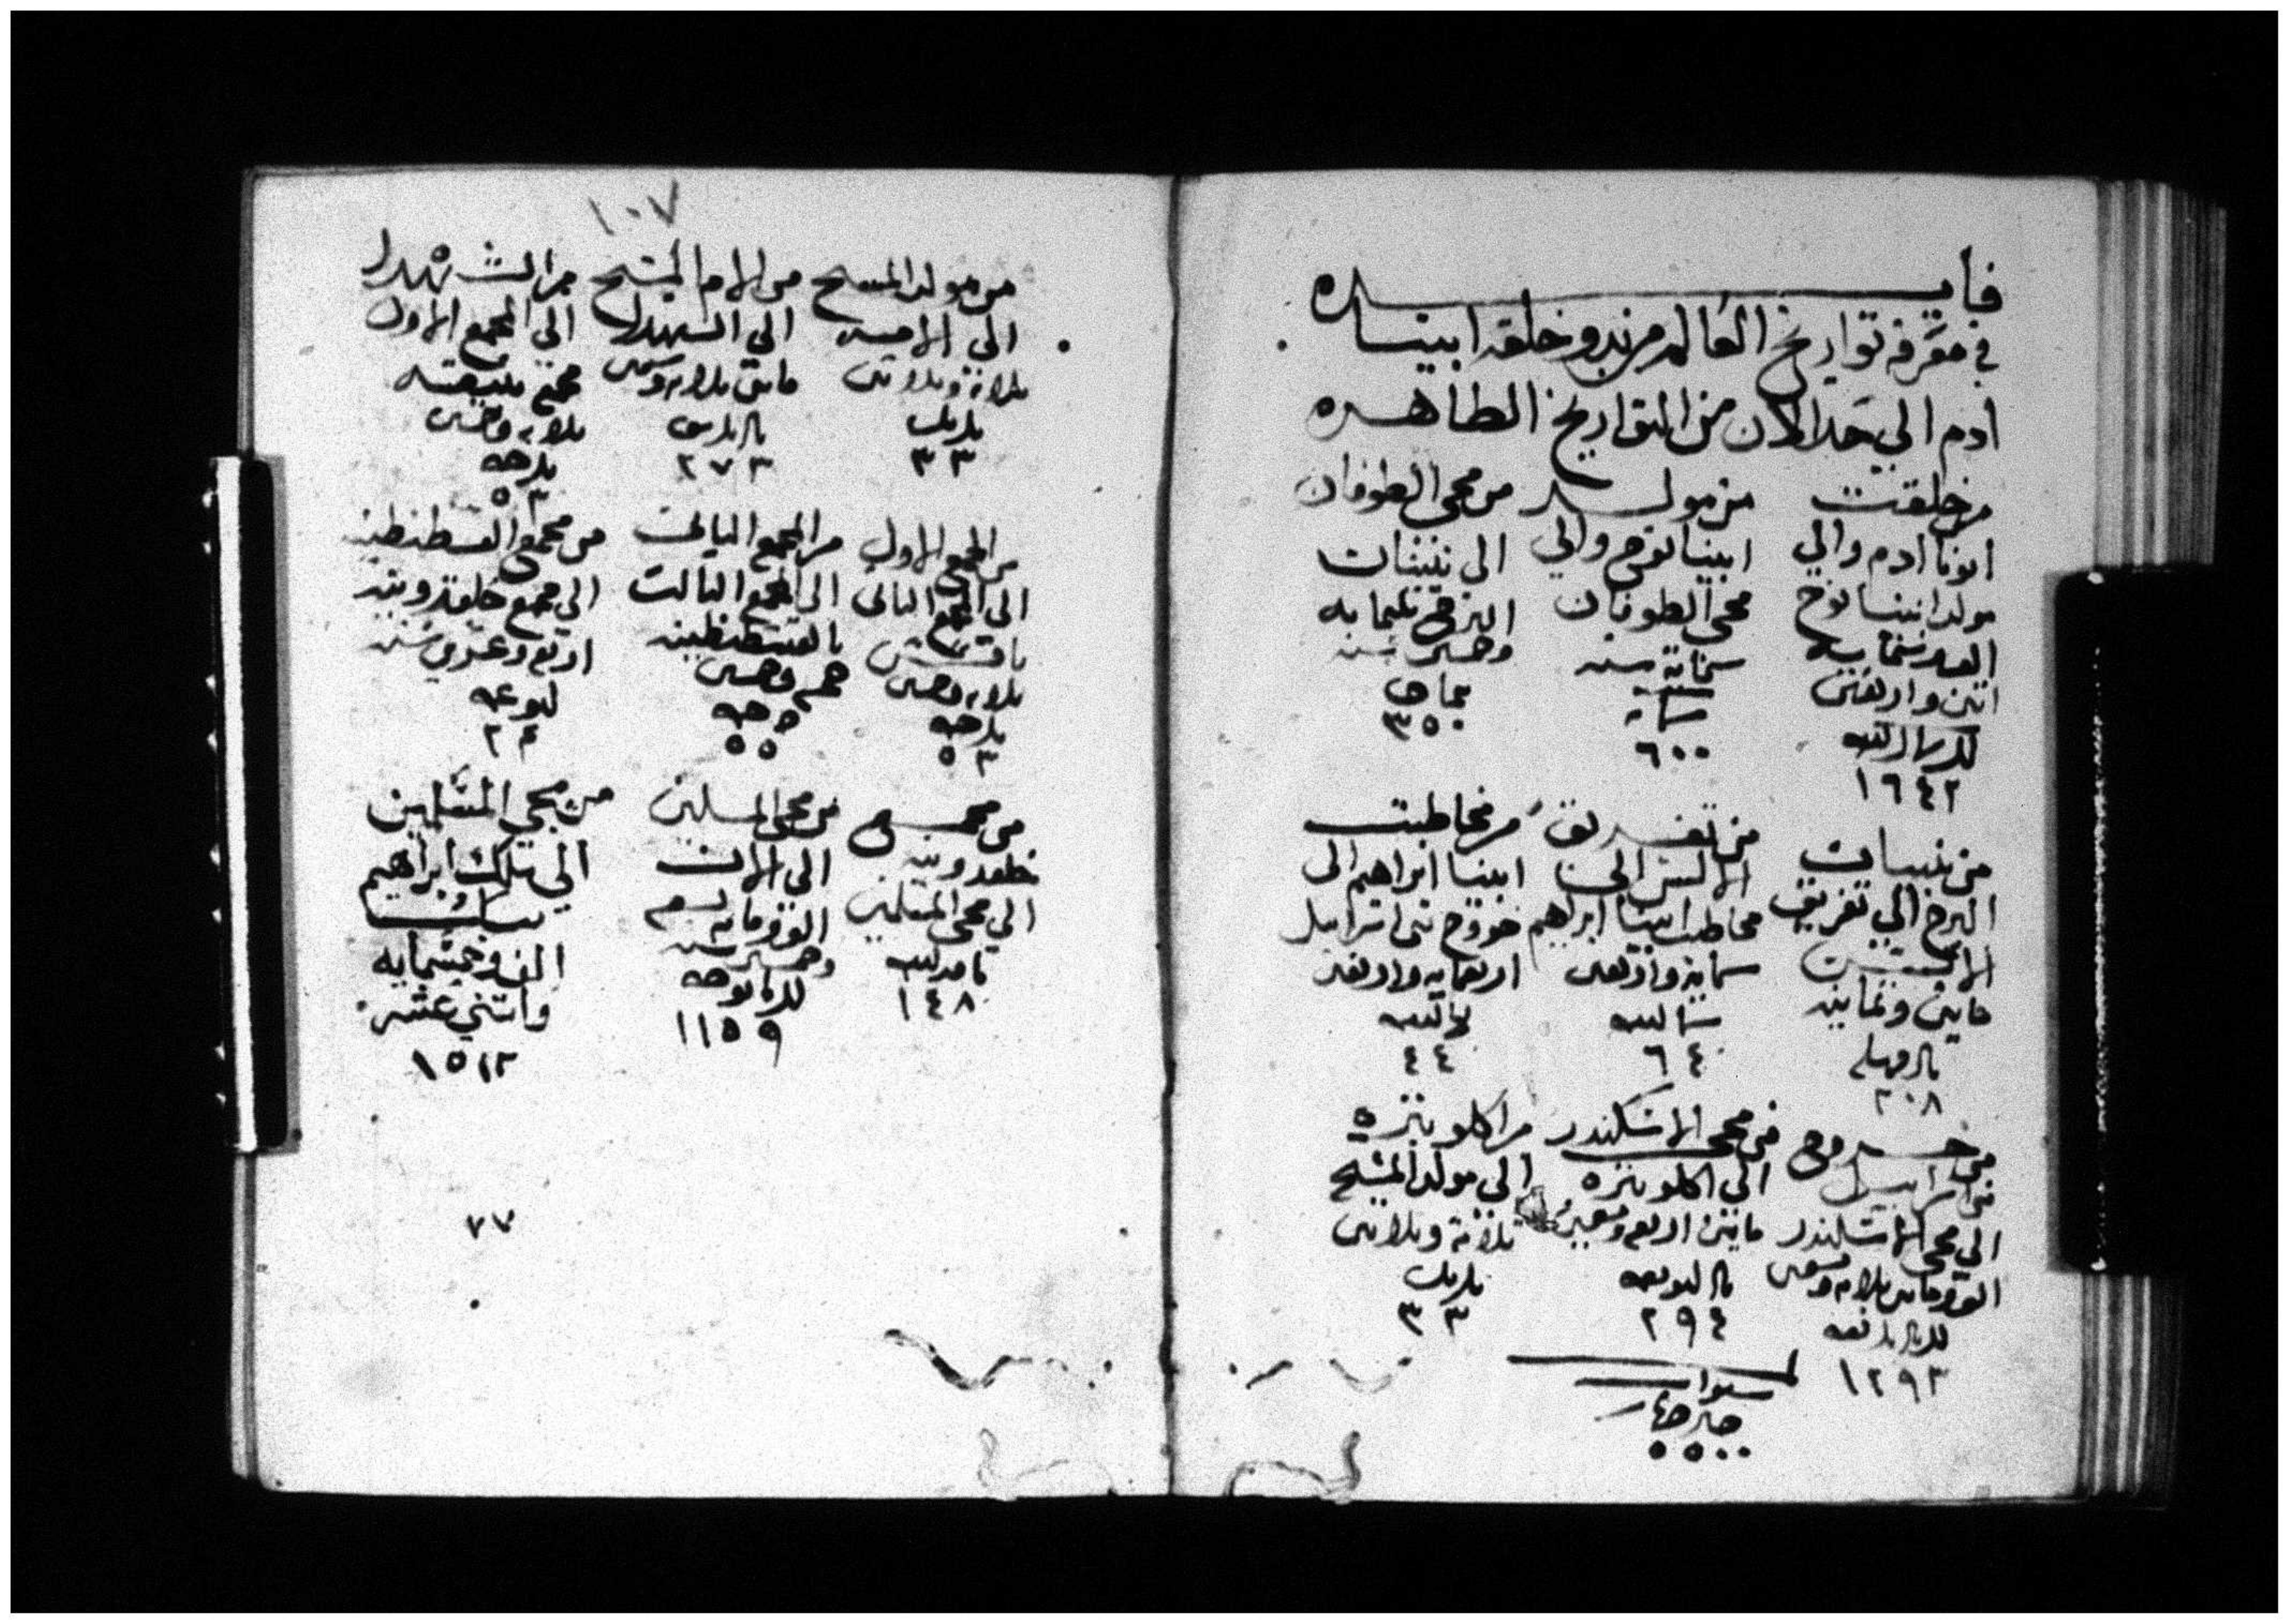 فايده
في معرفه تواريخ العالم من بدو خلقة ابينا
ادم الي حد الان من التواريخ الطاهره
من خلقت
ابونا ادم والي
مولد ابينا نوح
الف ستمايه
اتنين واربعين
١٦٤٢
من مولد
ابينا نوح والي
مجي الطوفان
ستماية سنه
٦٠٠
من مجي الطوفان
الى بنيات
البرج تلتمايه
وخمسين سنه
٣٥٠
من بنيات
البرج الي تفريق
الالسن
مايتن وتمانيه
٢٠٨
من تفريق
الالسن الى
مخاطبت ابينا ابراهيم
ستماية واربعين
٦٤
من مخاطبت
ابينا ابراهيم الى
خروج بني اسراييل
اربعمايه واربعين
٤٤
من خروج
بني اسراييل
الي مجي الاسكندر
الف ومايتن تلاته وتسعين
١٢٩٣
من مجي الاسكندر
الى اكلوبتره
مايتن اربع وتسعين
٢٩٤
من اكلوبتره
الي مولد المسيح
تلاتة وتلاتين
٣٣
٥٥٠٠
١٠٧
من مولد المسيح
الى الامه
تلاتة وتلاتين
٣٣
من الام المسيح
الى الشهدا
مايتن تلاته وسبعين
٢٧٣
من الشهدا
الي المجمع الاول
مجمع نيقيه
تلاته وخمسين
٥٣
من المجمع الاول
الى المجمع التاني
تلاته وخمسين
٥٣
من المجمع التاني
الى المجمع التالت
بالقسطنطينيه
خمسه وخمسين
٥٥
من مجمع القسطنطينيه
الي مجمع خلقدونيه
اربع وعشرين سنه
٢٤
من مجمع
خلقدونيه
الي مجي المسلمين
١٤٨
من مجي المسلمين
الي الان
الف ومايه تسع
وخمسين سنه
١١٥٩
من مجي المسلمين
الي تملك ابراهيم
الف وخمسمايه
واتني عشر
١٥١٢
٧٧